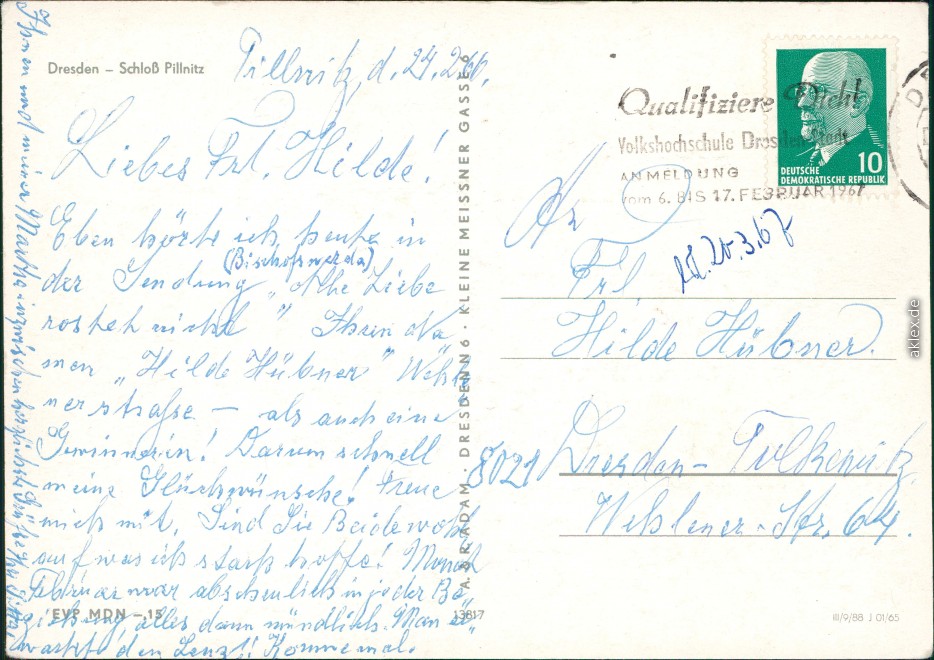 Dresden – Schloß Pillnitz
Pillnitz, d. 24.2.
Liebes Frl. Hilde!
Eben hörte ich heute in
(Bischofswerda)
der Sendung „Alte Liebe
rostet nicht" Ihren Na
men „Hilde Hübner"
nerstraße – als auch eine
Gewinnerin! Darum schnell
meine Glückwünsche! Freue
mich mit. Sind Sie Beide wohl
auf was ich stark hoffe! Monat
Februar war abscheulich in jeder Be
ziehung, alles dann mündlich. Man er
wartet den Lenz! Komme mal.
Ihnen und inzwischen herzlichste Grüße
EVP MDN –.15
13817
A. & R. ADAM · DRESDEN N 6 · KLEINE MEISSNER GASSE 6
Qualifiziere Dich!
Volkshochschule Dresden-Stadt
ANMELDUNG
vom 6. BIS 17. FEBRUAR 1967
10
DEUTSCHE
DEMOKRATISCHE REPUBLIK
20.3.67
An
Frl.
Hilde Hübner.
8021 Dresden-Tolkewitz
Str. 64.
III/9/88 J 01/65
aklex.de